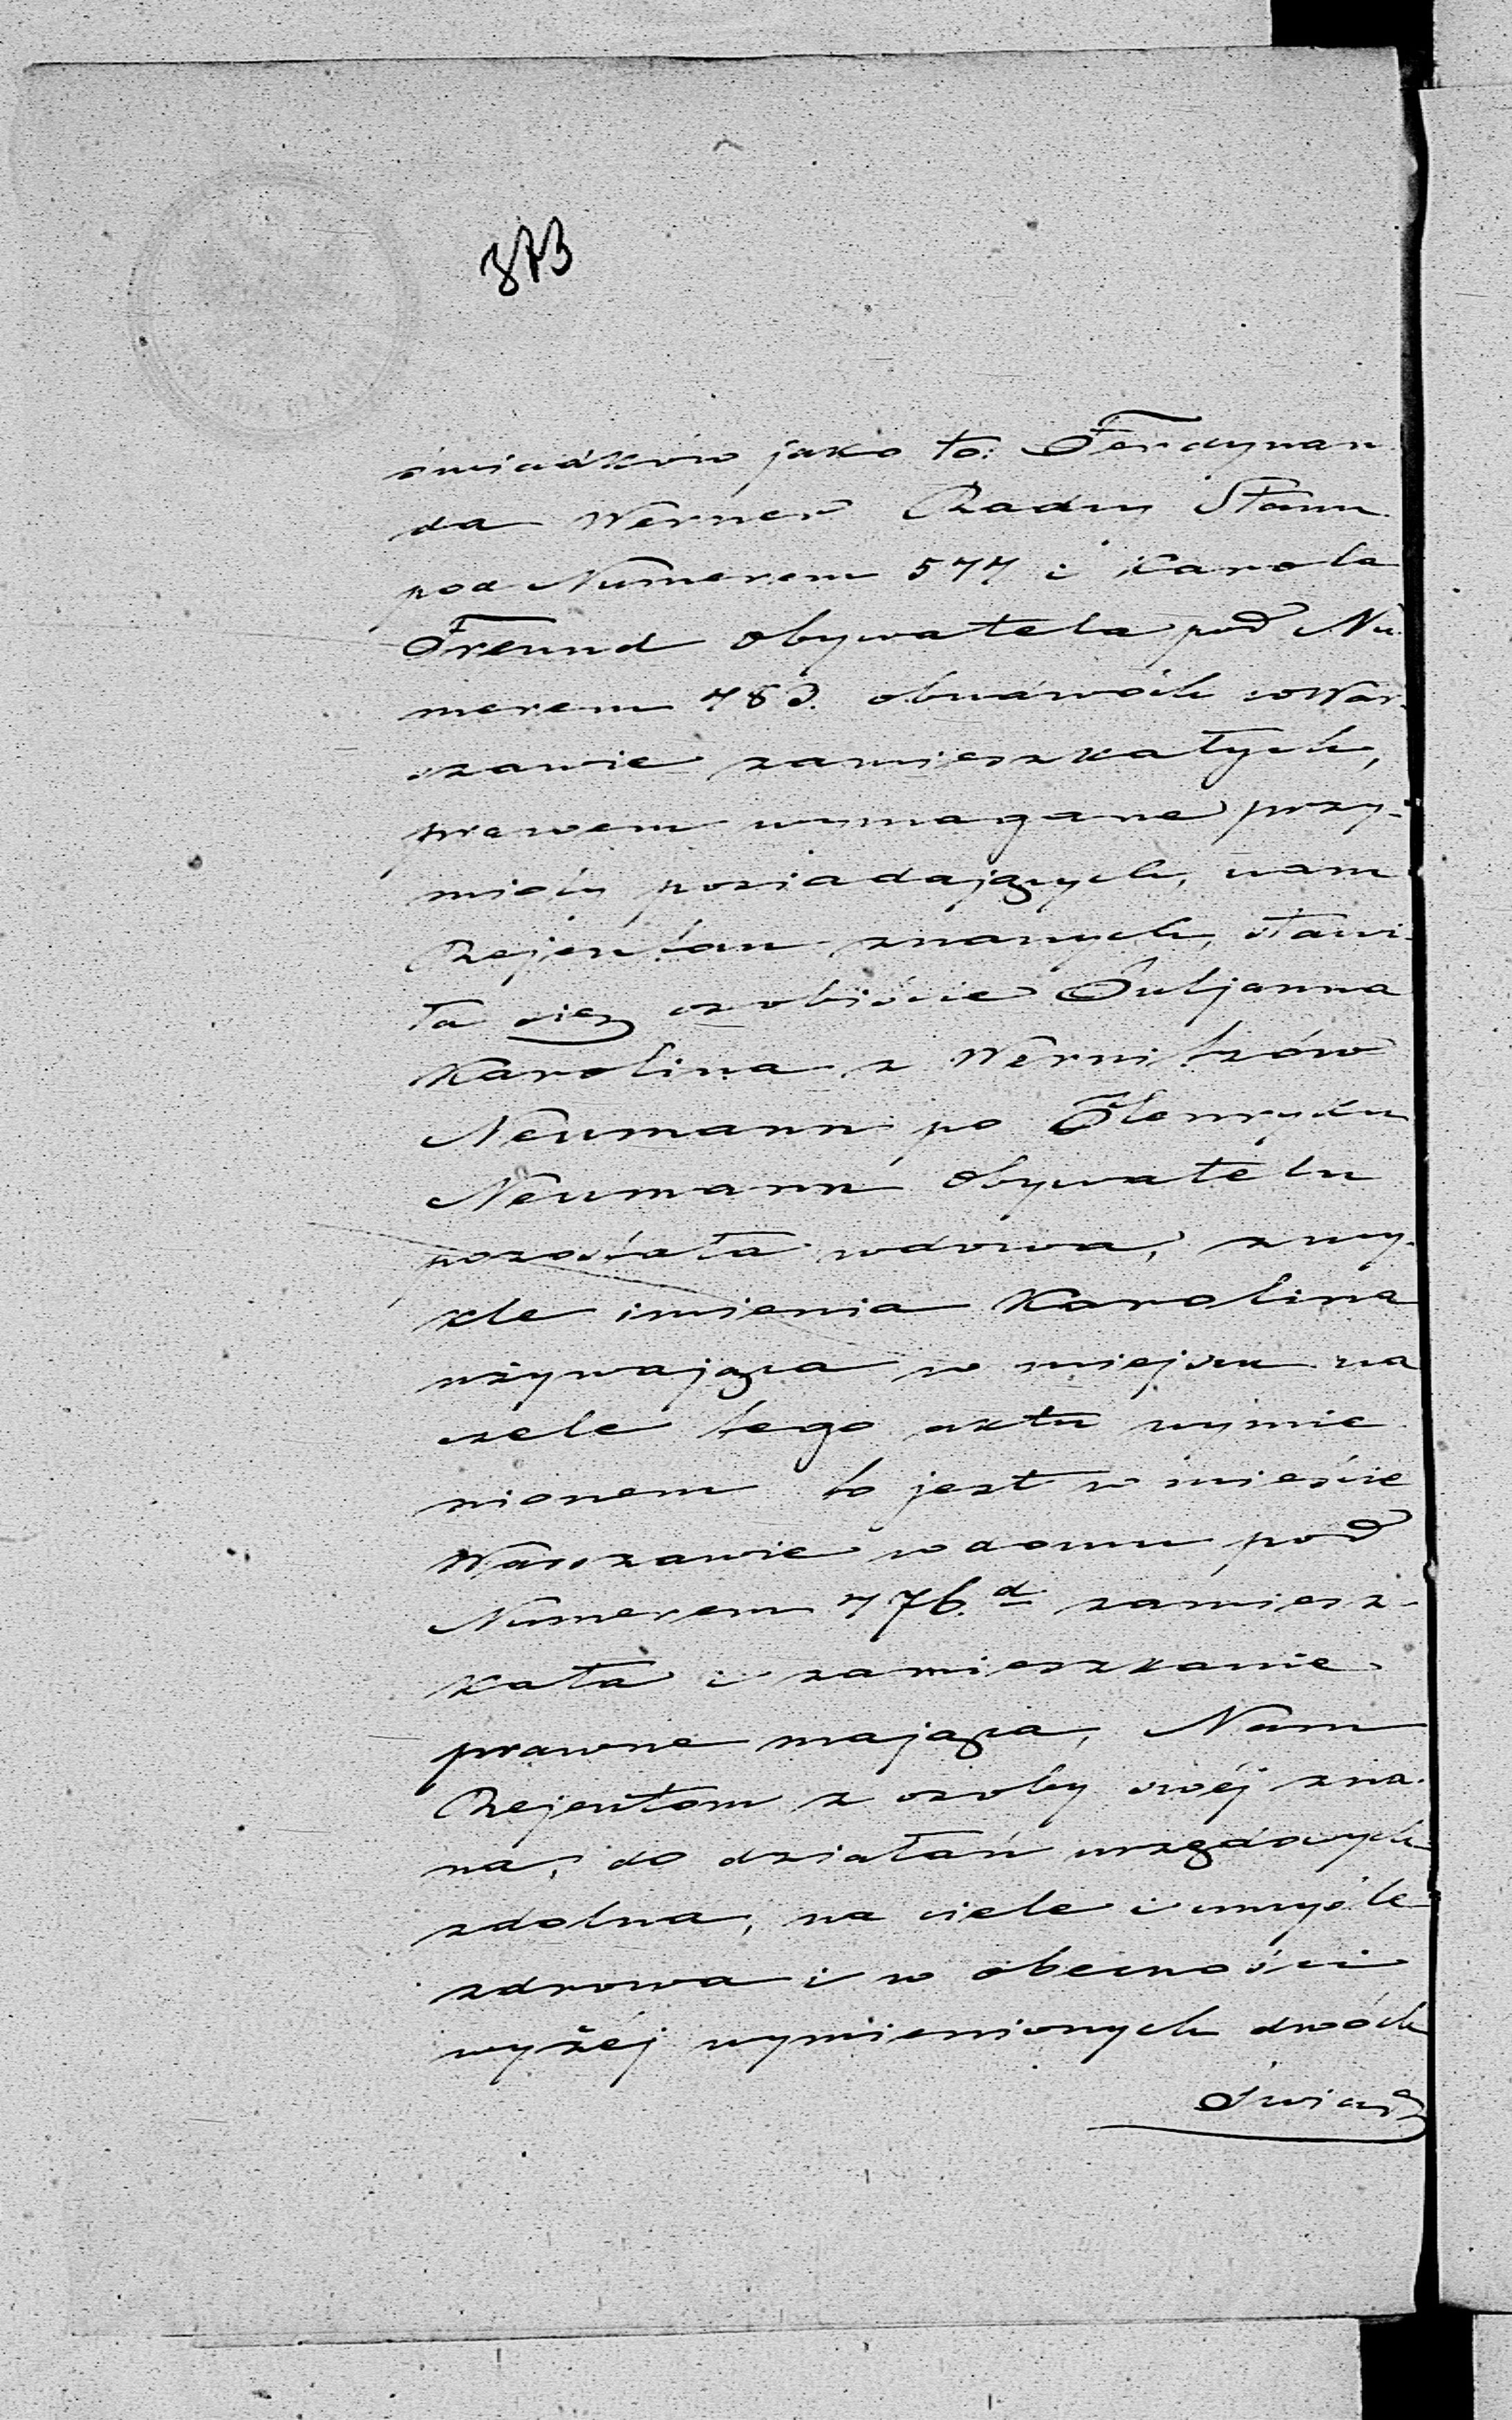 873
świadków jako to: Ferdynan
da Werner Radcy Stanu
pod Numerem 577 i Karola
Freund obywatela pod Nu-
merem 780. obudwóch w War-
szawie zamieszkałych,
prawem wymagane przy-
mioty posiadających, nam
Rejentom znanych, stawi-
ła się osobiście Juljanna
Karolina z Wernitzów
Neumann po Henryku
Neumann Obywatelu
pozostała wdowa, zwy-
kle imienia Karolina
używająca w miejscu na
czele tego aktu wymie
nionem to jest w mieście
Warszawie w domu pod
Numerem 776.d zamiesz-
kała i zamieszkanie
prawne mająca, Nam
Rejentom z osoby swéj zna-
na, do działań urzędowych
zdolna, na ciele i umyśle
zdrowa i w obecności
wyżéj wymienionych dwóch
Świad